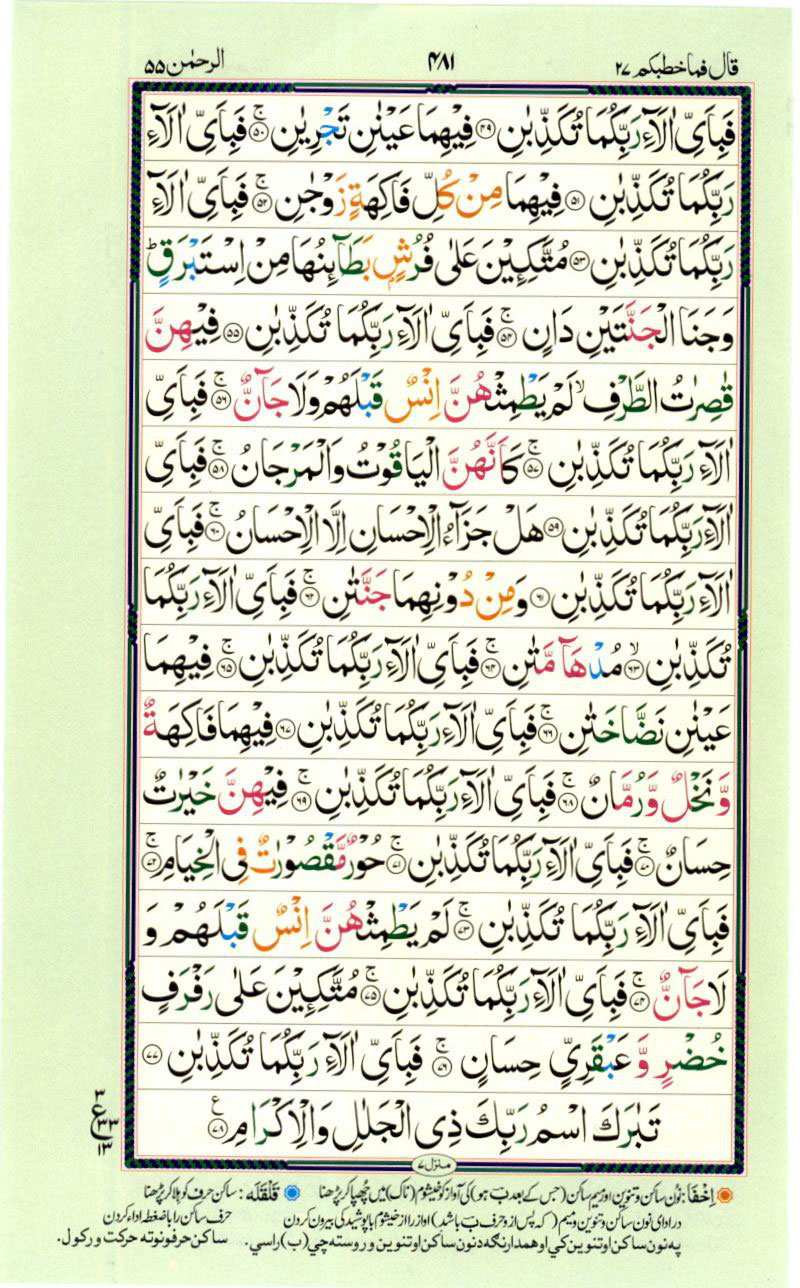 قال فما خطبكم ۲۷ ۴۸۱ الرحمٰن ۵۵
فَبِاَيِّ اٰلَآءِ رَبِّكُمَا تُكَذِّبٰنِ ﴿۴۹﴾ فِيْهِمَا عَيْنٰنِ تَجْرِيٰنِ ﴿۵۰﴾ۚ فَبِاَيِّ اٰلَآءِ
رَبِّكُمَا تُكَذِّبٰنِ ﴿۵۱﴾ فِيْهِمَا مِنْ كُلِّ فَاكِهَةٍ زَوْجٰنِ ﴿۵۲﴾ۚ فَبِاَيِّ اٰلَآءِ
رَبِّكُمَا تُكَذِّبٰنِ ﴿۵۳﴾ مُتَّكِـِٕيْنَ عَلٰى فُرُشٍۭ بَطَآىِٕنُهَا مِنْ اِسْتَبْرَقٍؕ
وَجَنَا الْجَنَّتَيْنِ دَانٍ ﴿۵۴﴾ۚ فَبِاَيِّ اٰلَآءِ رَبِّكُمَا تُكَذِّبٰنِ ﴿۵۵﴾ فِيْهِنَّ
قٰصِرٰتُ الطَّرْفِۙ لَمْ يَطْمِثْهُنَّ اِنْسٌ قَبْلَهُمْ وَلَا جَآنٌّ ﴿۵۶﴾ۚ فَبِاَيِّ
اٰلَآءِ رَبِّكُمَا تُكَذِّبٰنِ ﴿۵۷﴾ۚ كَاَنَّهُنَّ الْيَاقُوْتُ وَالْمَرْجَانُ ﴿۵۸﴾ۚ فَبِاَيِّ
اٰلَآءِ رَبِّكُمَا تُكَذِّبٰنِ ﴿۵۹﴾ هَلْ جَزَآءُ الْاِحْسَانِ اِلَّا الْاِحْسَانُ ﴿۶۰﴾ۚ فَبِاَيِّ
اٰلَآءِ رَبِّكُمَا تُكَذِّبٰنِ ﴿۶۱﴾ وَمِنْ دُوْنِهِمَا جَنَّتٰنِ ﴿۶۲﴾ۚ فَبِاَيِّ اٰلَآءِ رَبِّكُمَا
تُكَذِّبٰنِ ﴿۶۳﴾ۙ مُدْهَآمَّتٰنِ ﴿۶۴﴾ۚ فَبِاَيِّ اٰلَآءِ رَبِّكُمَا تُكَذِّبٰنِ ﴿۶۵﴾ۚ فِيْهِمَا
عَيْنٰنِ نَضَّاخَتٰنِ ﴿۶۶﴾ۚ فَبِاَيِّ اٰلَآءِ رَبِّكُمَا تُكَذِّبٰنِ ﴿۶۷﴾ فِيْهِمَا فَاكِهَةٌ
وَّنَخْلٌ وَّرُمَّانٌ ﴿۶۸﴾ۚ فَبِاَيِّ اٰلَآءِ رَبِّكُمَا تُكَذِّبٰنِ ﴿۶۹﴾ۚ فِيْهِنَّ خَيْرٰتٌ
حِسَانٌ ﴿۷۰﴾ۚ فَبِاَيِّ اٰلَآءِ رَبِّكُمَا تُكَذِّبٰنِ ﴿۷۱﴾ۚ حُوْرٌ مَّقْصُوْرٰتٌ فِى الْخِيَامِ ﴿۷۲﴾ۚ
فَبِاَيِّ اٰلَآءِ رَبِّكُمَا تُكَذِّبٰنِ ﴿۷۳﴾ۚ لَمْ يَطْمِثْهُنَّ اِنْسٌ قَبْلَهُمْ وَ
لَا جَآنٌّ ﴿۷۴﴾ۚ فَبِاَيِّ اٰلَآءِ رَبِّكُمَا تُكَذِّبٰنِ ﴿۷۵﴾ۚ مُتَّكِـِٕيْنَ عَلٰى رَفْرَفٍ
خُضْرٍ وَّعَبْقَرِيٍّ حِسَانٍ ﴿۷۶﴾ۚ فَبِاَيِّ اٰلَآءِ رَبِّكُمَا تُكَذِّبٰنِ ﴿۷۷﴾
تَبٰرَكَ اسْمُ رَبِّكَ ذِى الْجَلٰلِ وَالْاِكْرَامِ ﴿۷۸﴾ع
۳
ع ۳۳
۱۳
منزل ۷
اِخفَا: نُون ساکن و تنوین اور میم ساکن (جس کے بعد ب ہو) کی آواز کو خیشوم (ناک) میں چھپا کر پڑھنا قَلقَلَہ: ساکن حرف کو ہلا کر پڑھنا
در ادای نون ساکن و تنوین و میم (که پس از و حرف ب باشد) آواز را از خیشوم با پوشیدگی بیرون کردن حرف ساکن را با ضغطه اداء کردن
په نون ساکن او تنوین کي او همدارنگه د نون ساکن او تنوین وروسته چي (ب) راسي. ساکن حرفونو ته حرکت ورکول.